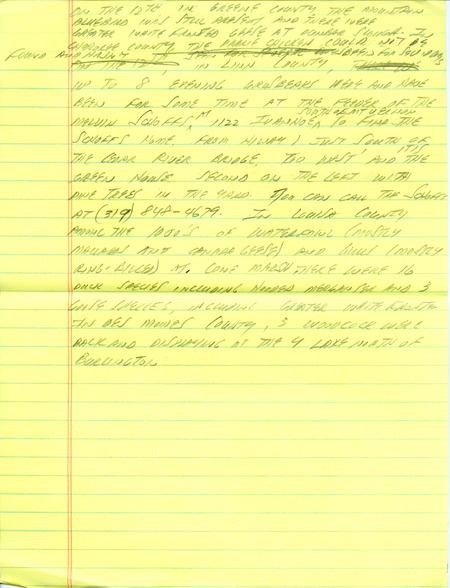 ON THE 12TH IN GREENE COUNTY THE MOUNTAIN
BLUEBIRD WAS STILL PRESENT AND THERE WERE
GREATER WHITE FRONTED GEESE AT DUNBAR SLOUGH. IN
COUNTY THE PRAIRIE CHICKEN COULD NOT BE
FOUND AND IN LINN COUNTY,
UP TO 8 EVENING GROSBEAKS WERE AND HAVE
BEEN FOR SOME TIME AT THE FEEDER OF THE
MELVIN SCHOFFS 1122 SOUTH OF MT VERNON TO FIND THE
SCHOFFS HOME, FROM HIWAY 1 JUST SOUTH OF
THE CEDAR RIVER BRIDGE, GO WEST AND ITS THE
GREEN HOUSE SECOND ON THE LEFT WITH
PINE TREES IN THE YARD. YOU CAN CALL THE SCHOFFS
AT (319) 848-4679. IN LOUISA COUNTY
AMONG THE 1000'S OF WATERFOWL (MOSTLY
MALLARDS AND CANADA GEESE) AND GULLS (MOSTLY
RING-BILLED) AT CONE MARSH THERE WERE 16
DUCK SPECIES INCLUDING HOODED MERGANSER AND 3
GEESE SPECIES, INCLUDING GREATER WHITE FRONTED
IN DES MOINES COUNTY, 3 WOODCOCK WERE
BACK AND DISPLAYING AT THE 4 LAKE NORTH OF
BURLINGTON.